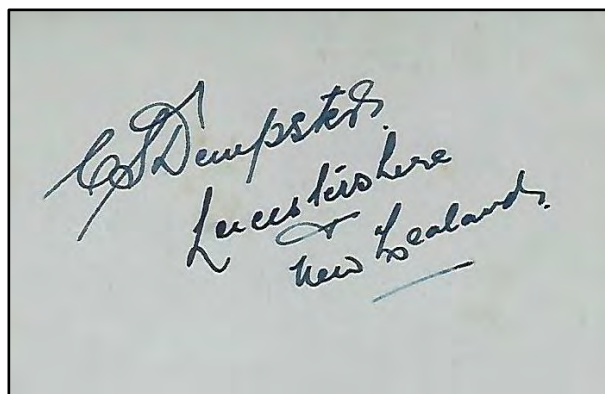 CS Dempster.
Leicestershire
&
New Zealand.